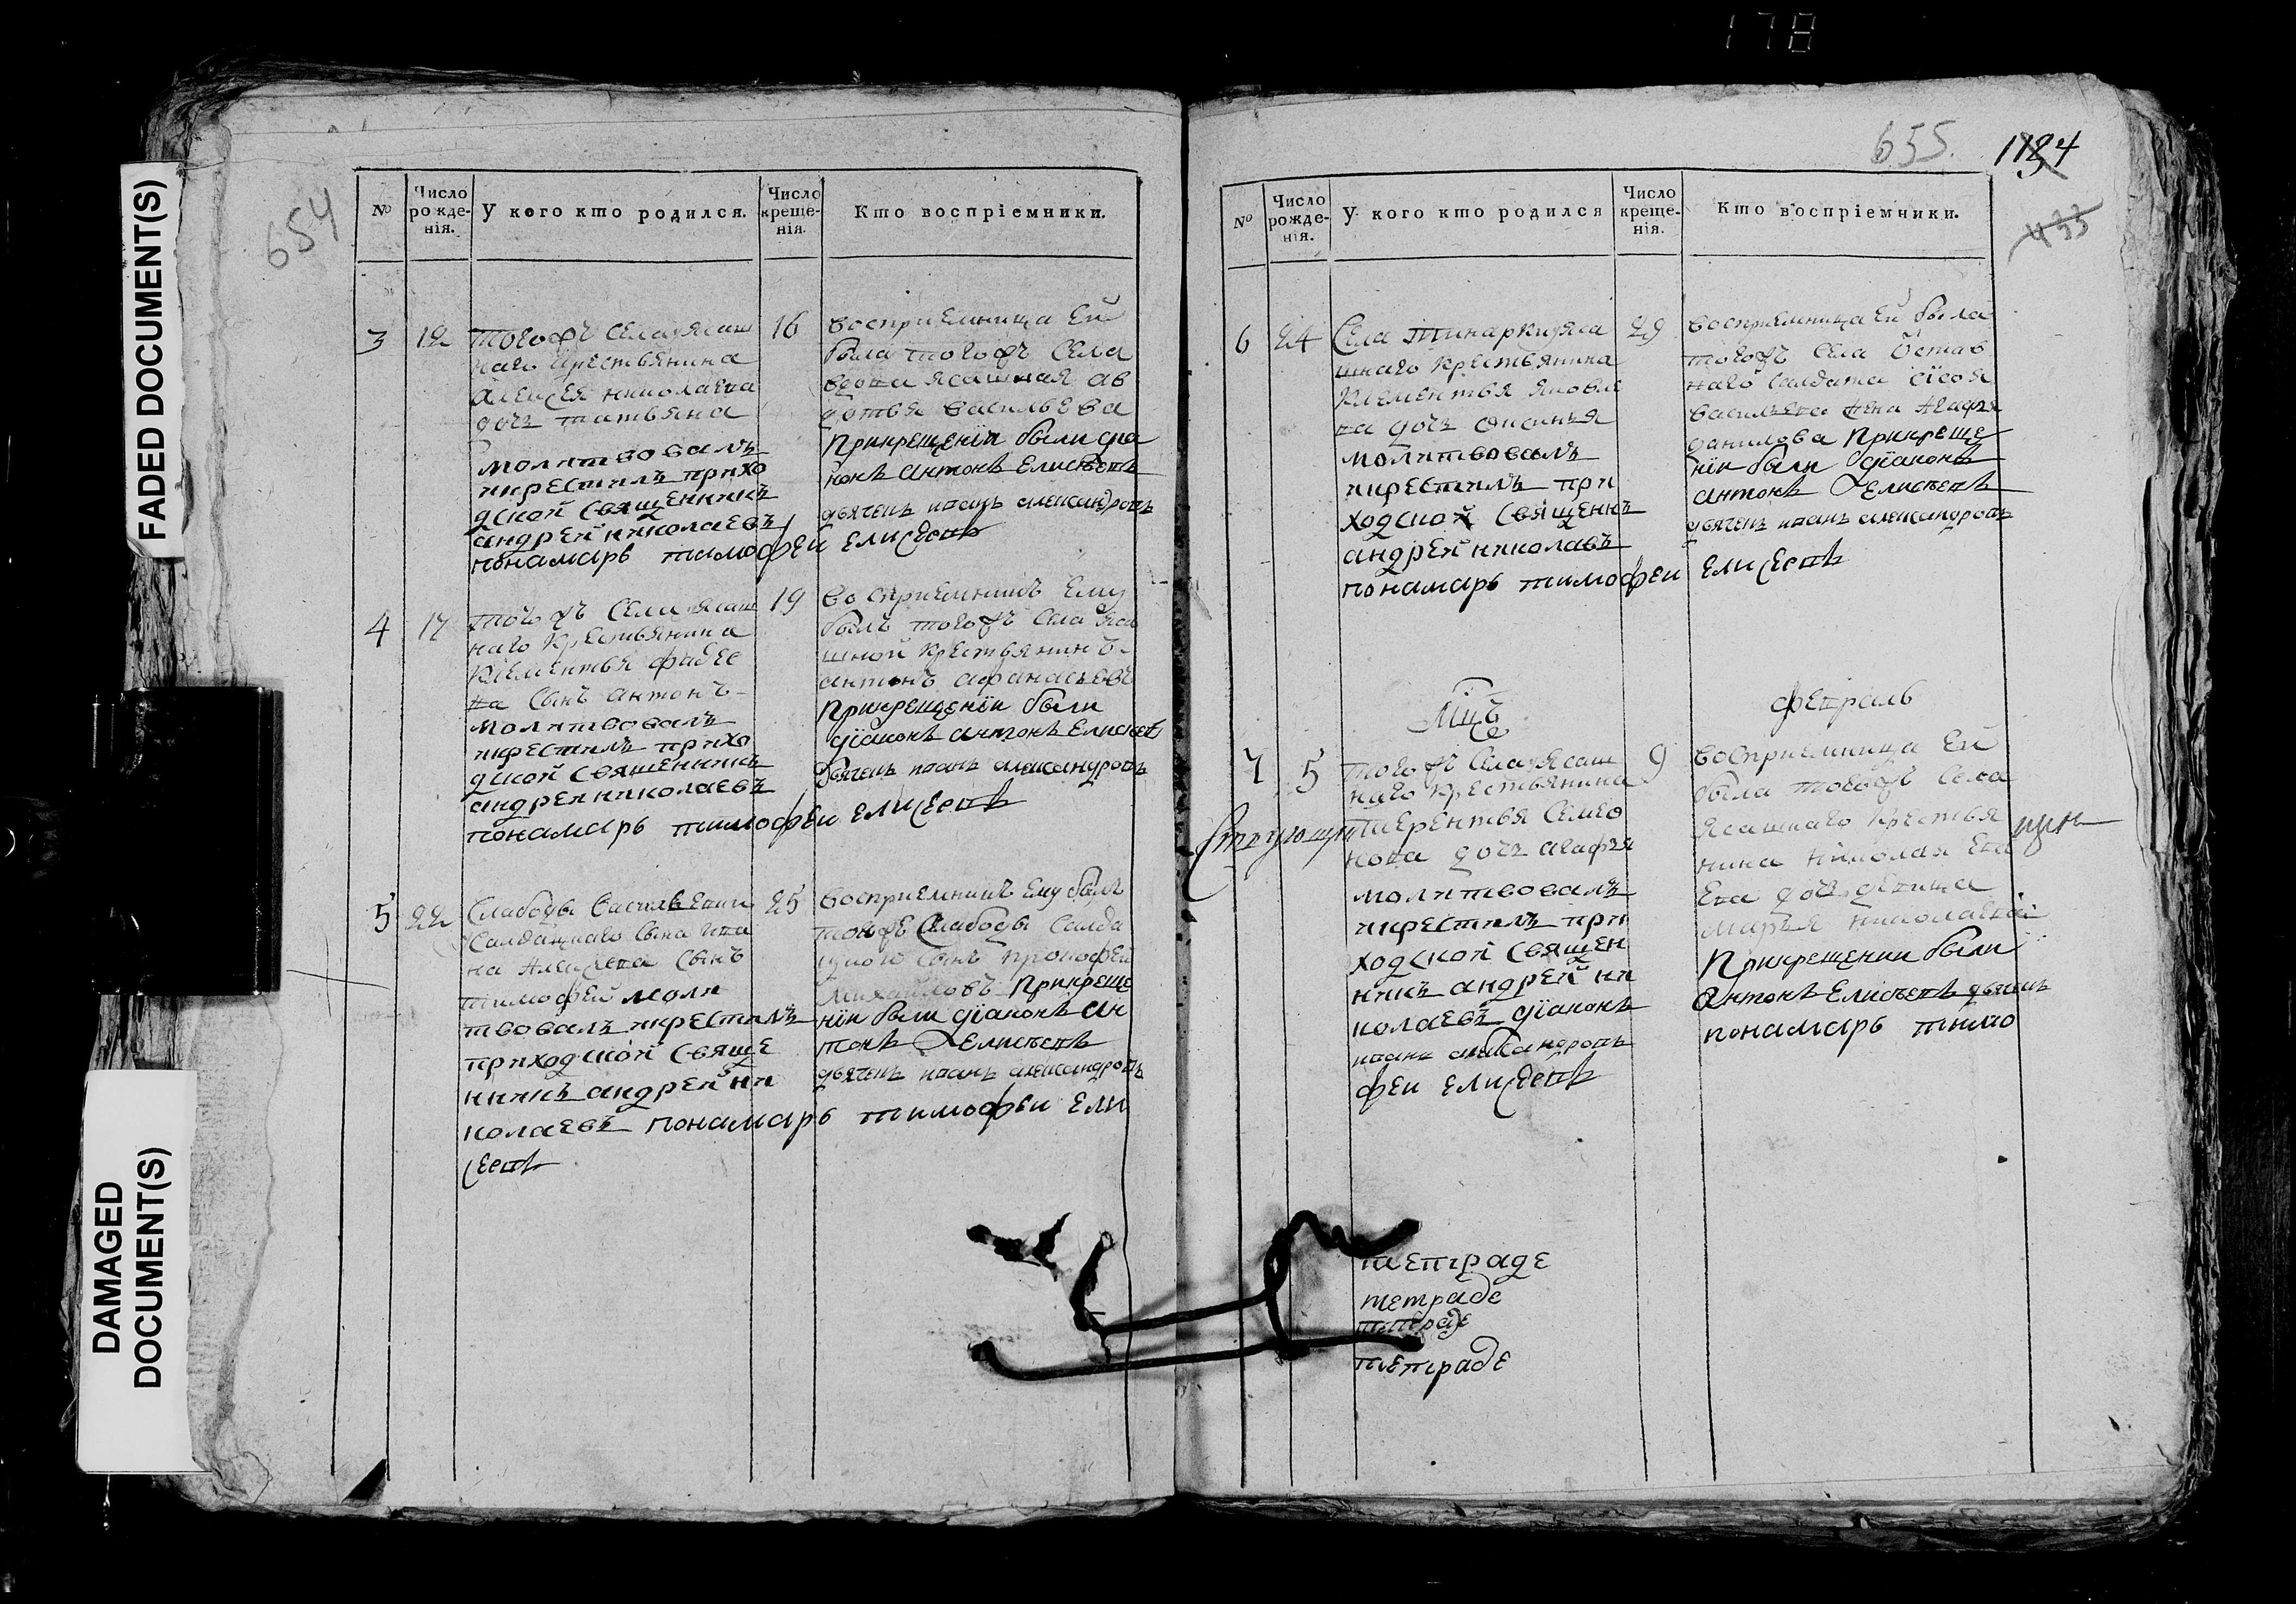 178
FADED DOCUMENT(S)
DAMAGED
DOCUMENT(S)
654
№
Число рожде-нія.
У кого кто родился.
Число креще-нія.
Кто воспріемники.
3
12
тогожъ села ясаш
наго крестьянина
Алексея николаева
дочь татьяна
молитвовалъ
икрестилъ прихо
дской священникъ
андрей николаевъ
16
восприемница Ей
была тогожъ села
ясашная ав
дотья васильева
Прикрещеніи были диа
конъ антонъ Елисеевъ
дьячекъ иванъ александровъ
понамарь тимофеи елисеевъ
4
17
тогожъ села ясаш
наго крестьянина
Клементья фадее
ва сынъ антонъ
молитвовалъ
икрестилъ прихо
дской священникъ
андреи николаевъ
19
восприемникъ Ему
былъ тогожъ села яса
шной крестьянинъ
антонъ афанасьевъ
Прикрещеніи были
діаконъ антонъ Елисеевъ
дьячекъ иванъ александровъ
понамарь тимофеи елисеевъ
5
22
Слабоды васильевки
Салдацкаго сына ива
на Алексеева сынъ
тимофей моли
твовалъ икрестилъ
приходской свяще
никъ андрей ни
колаевъ
25
восприемникъ Ему былъ
тойже слабоды салда
цкой сынъ прокофей
Михайловъ Прикреще
ніи были діаконъ ан
тонъ Елисеевъ
дьячекъ иванъ александровъ
понамарь тимофеи ели
сеевъ
655.
1184
433
№
Число рожде-нія.
У кого кто родился
Число креще-нія.
Кто воспріемники.
6
24
Села тинарки яса
шнаго крестьянина
Клементья яковле
ва дочь
молитвовалъ
икрестилъ при
ходской священикъ
андрей николавъ
29
восприемница Ей была
тогожъ села Отстав
наго салдата сісоя
васильева жена Агафья
данилова Прикреще
ніи были діаконъ
антонъ Елисеевъ
дьячекъ иванъ александровъ
понамарь тимофеи елисеевъ
Мцъ
февраль
7
5
тогожъ села ясаш
наго крестьянина
терентья Семіо
нова дочь агафья
молитвовалъ
икрестилъ при
ходской священ
никъ андрей ни
колаевъ діаконъ
иванъ александровъ
феи елисеевъ
9
восприемница Ей
была тогожъ села
ясашнаго крестья
нина николая
дочь девица
марья николаева
Прикрещении были
антонъ Елисеевъ дьячекъ
понамарь тимо
тетраде
тетраде
тетраде
тетраде